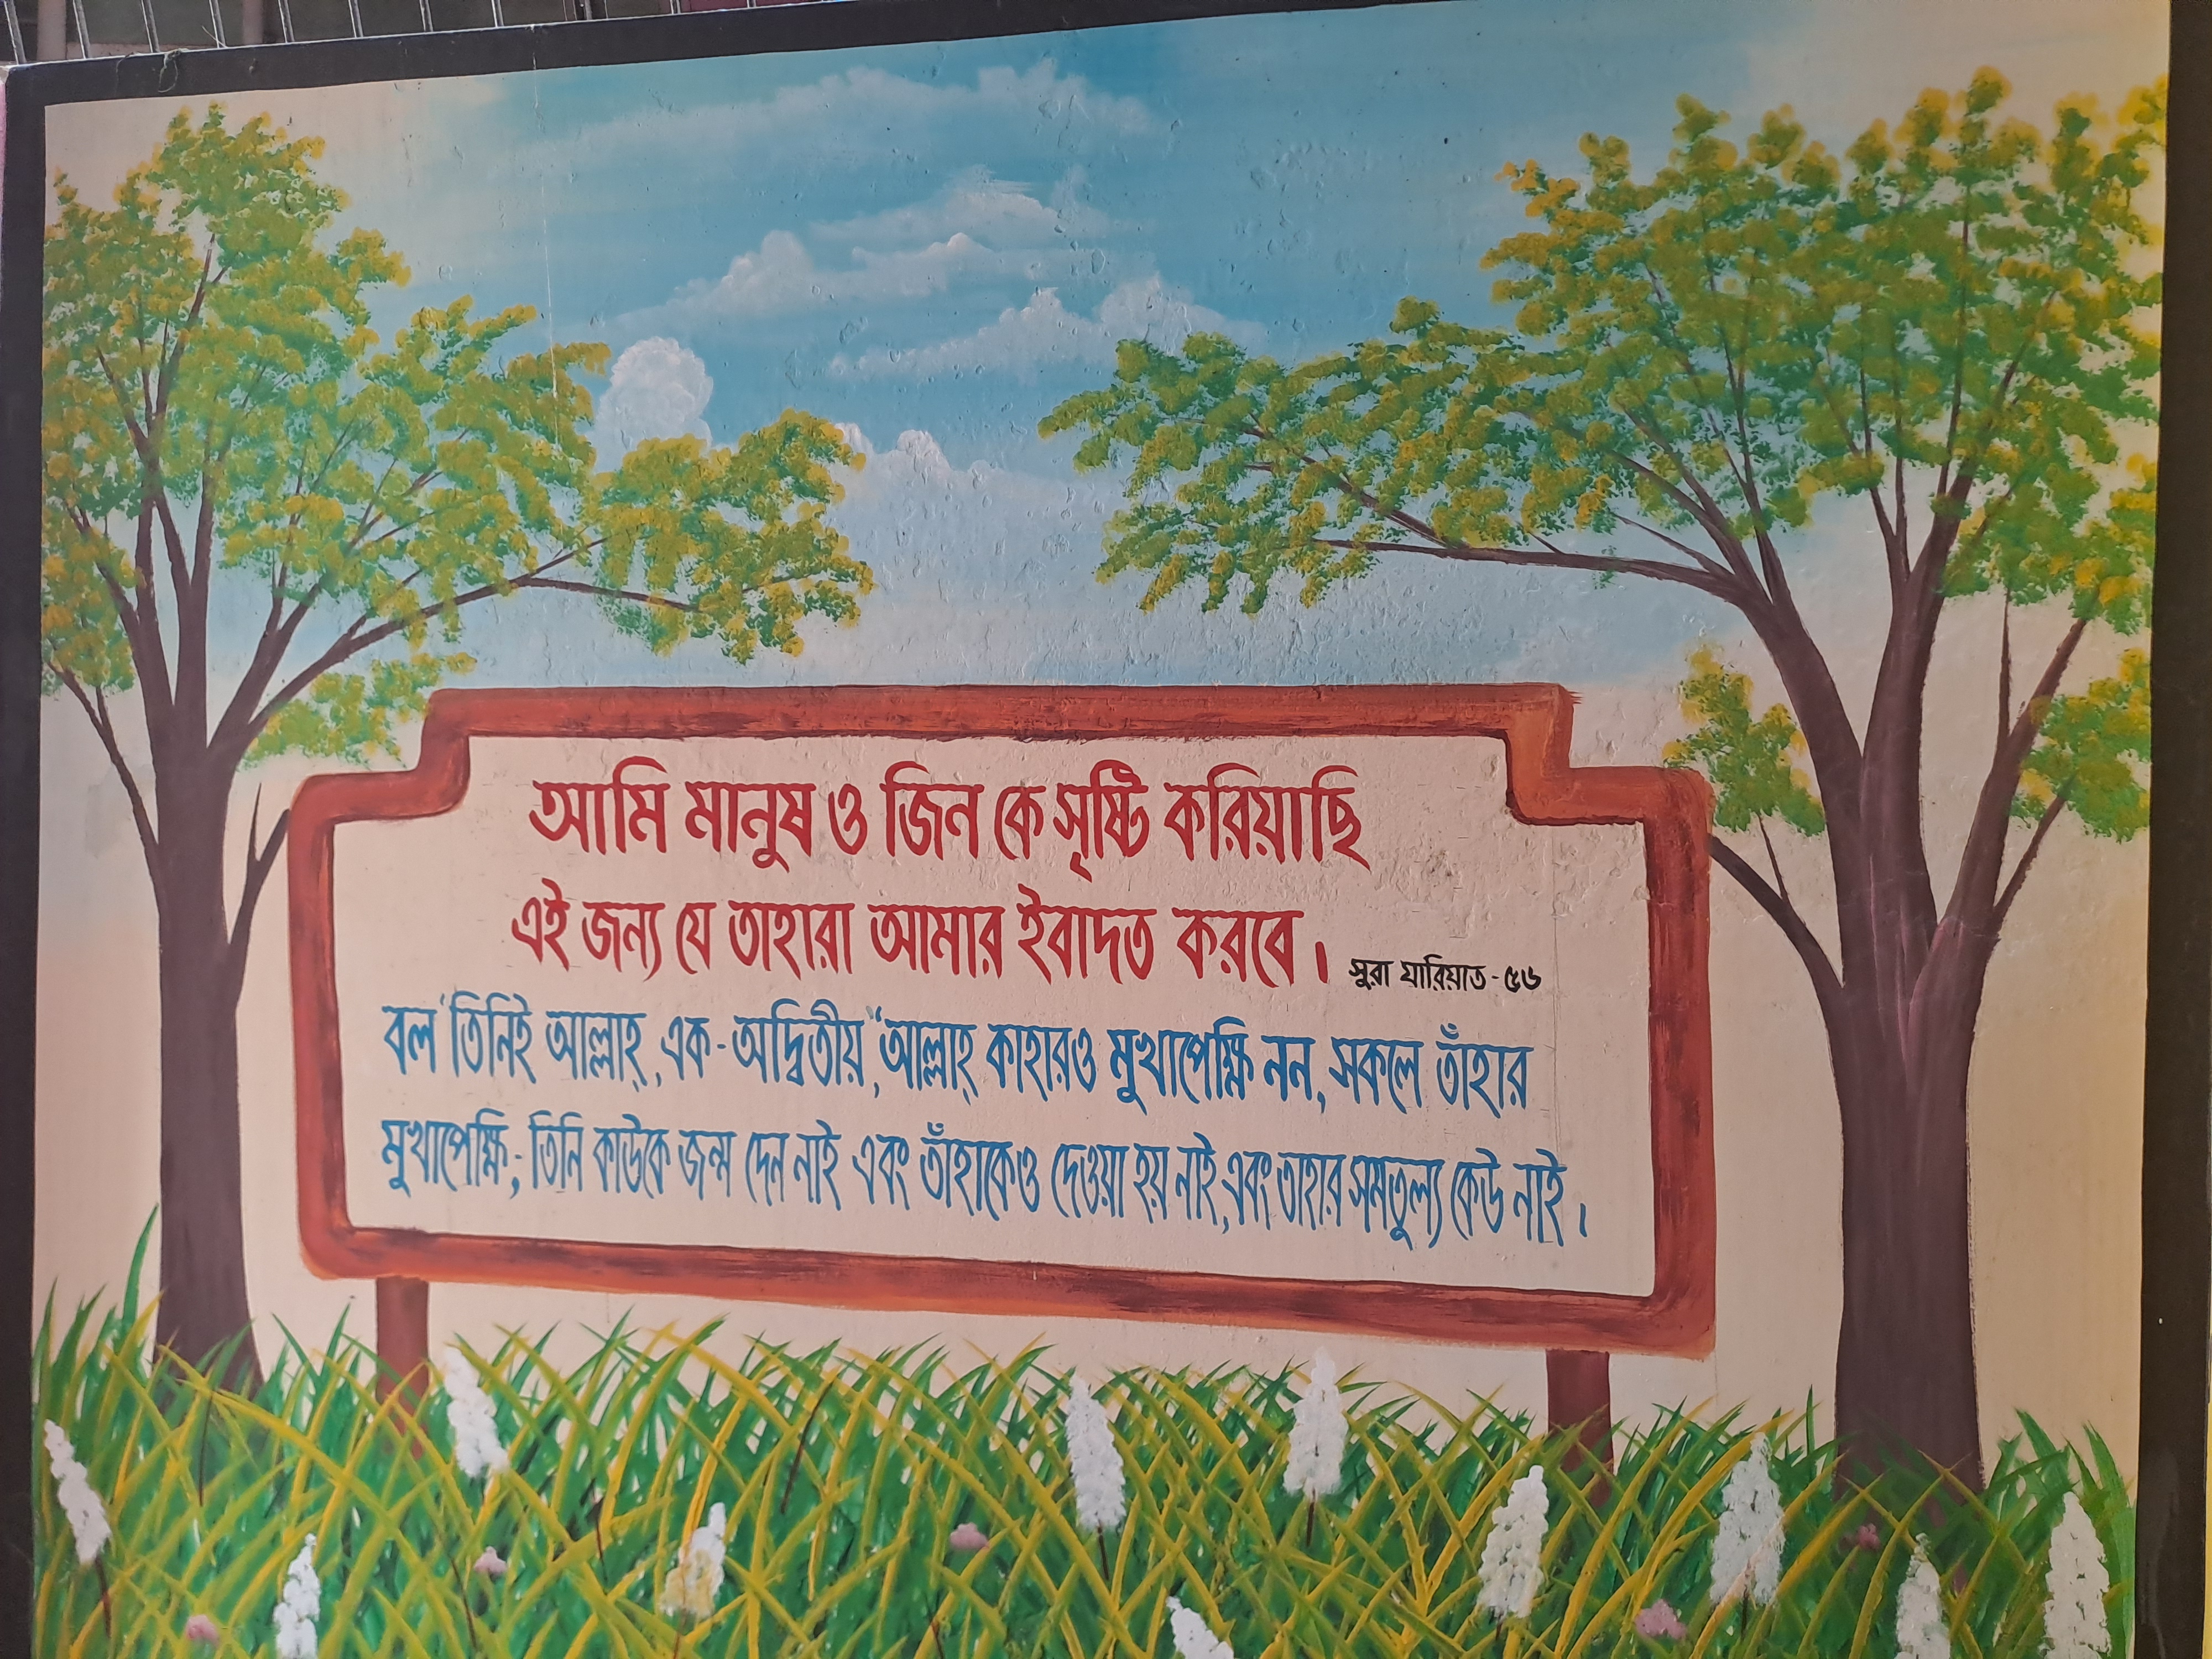 আমি মানুষ ও জিন কে সৃষ্টি করিয়াছি
এই জন্য যে তাহারা আমার ইবাদত করবে।
সুরা যারিয়াত - ৫৬
বল 'তিনিই আল্লাহ্, এক - অদ্বিতীয়, "আল্লাহ্ কাহারও মুখাপেক্ষি নন, সকলে তাঁহার
মুখাপেক্ষি,- তিনি কাউকে জন্ম দেন নাই এবং তাঁহাকেও দেওয়া হয় নাই, এবং তাহার সমতুল্য কেউ নাই।